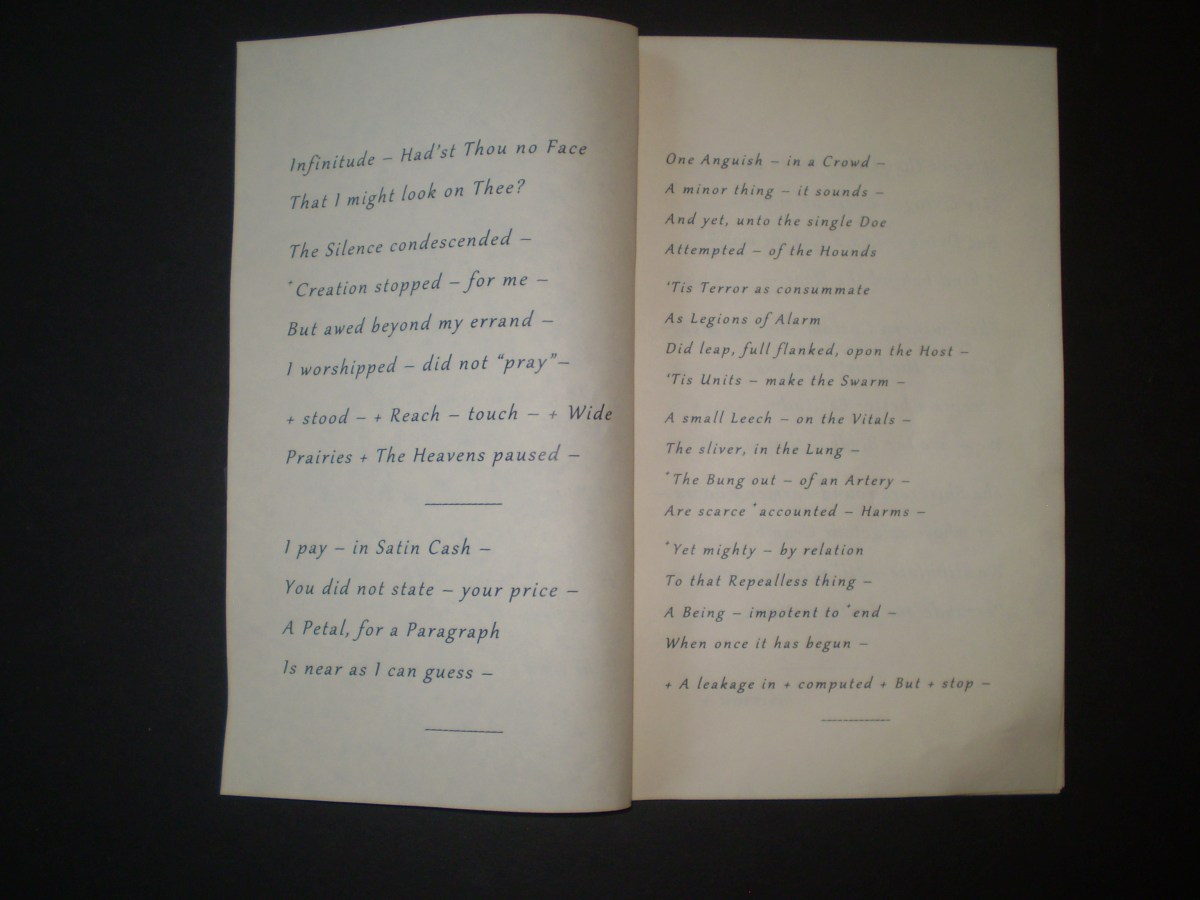 Infinitude – Had'st Thou no Face
That I might look on Thee?
The Silence condescended –
+Creation stopped – for me –
But awed beyond my errand –
I worshipped – did not “pray”–
+ stood – + Reach – touch – + Wide
Prairies + The Heavens paused –
I pay – in Satin Cash –
You did not state – your price –
A Petal, for a Paragraph
Is near as I can guess –
One Anguish – in a Crowd –
A minor thing – it sounds –
And yet, unto the single Doe
Attempted – of the Hounds
‘Tis Terror as consummate
As Legions of Alarm
Did leap, full flanked, opon the Host –
‘Tis Units – make the Swarm –
A small Leech – on the Vitals –
The sliver, in the Lung –
+The Bung out – of an Artery –
Are scarce +accounted – Harms –
+Yet mighty – by relation
To that Repealless thing –
A Being – impotent to +end –
When once it has begun –
+ A leakage in + computed + But + stop –